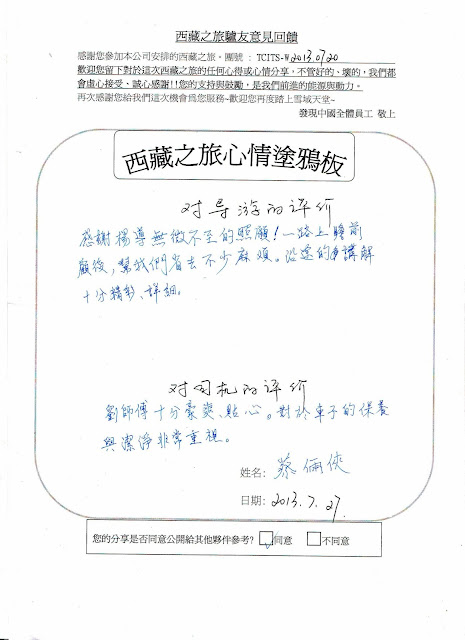 西藏之旅驢友意見回饋
感謝您參加本公司安排的西藏之旅。團號：TCITS-W2013.0720
歡迎您留下對於這次西藏之旅的任何心得或心情分享，不管好的、壞的，我們都
會虛心接受、誠心感謝!!您的支持與鼓勵，是我們前進的能源與動力。
再次感謝您給我們這次機會為您服務~歡迎您再度踏上雪域天堂~
發現中國全體員工 敬上
西藏之旅心情塗鴉板
对导游的评价
感謝楊導無微不至的照顧！一路上瞻前
顧後，幫我們省去不少麻煩。沿途的講解
十分精彩、詳細。
对司机的评价
劉師傅十分豪爽、貼心。對於車子的保養
與潔淨非常重視。
姓名：蔡俪俠
日期：2013.7.27.
您的分享是否同意公開給其他夥伴參考? 同意 不同意